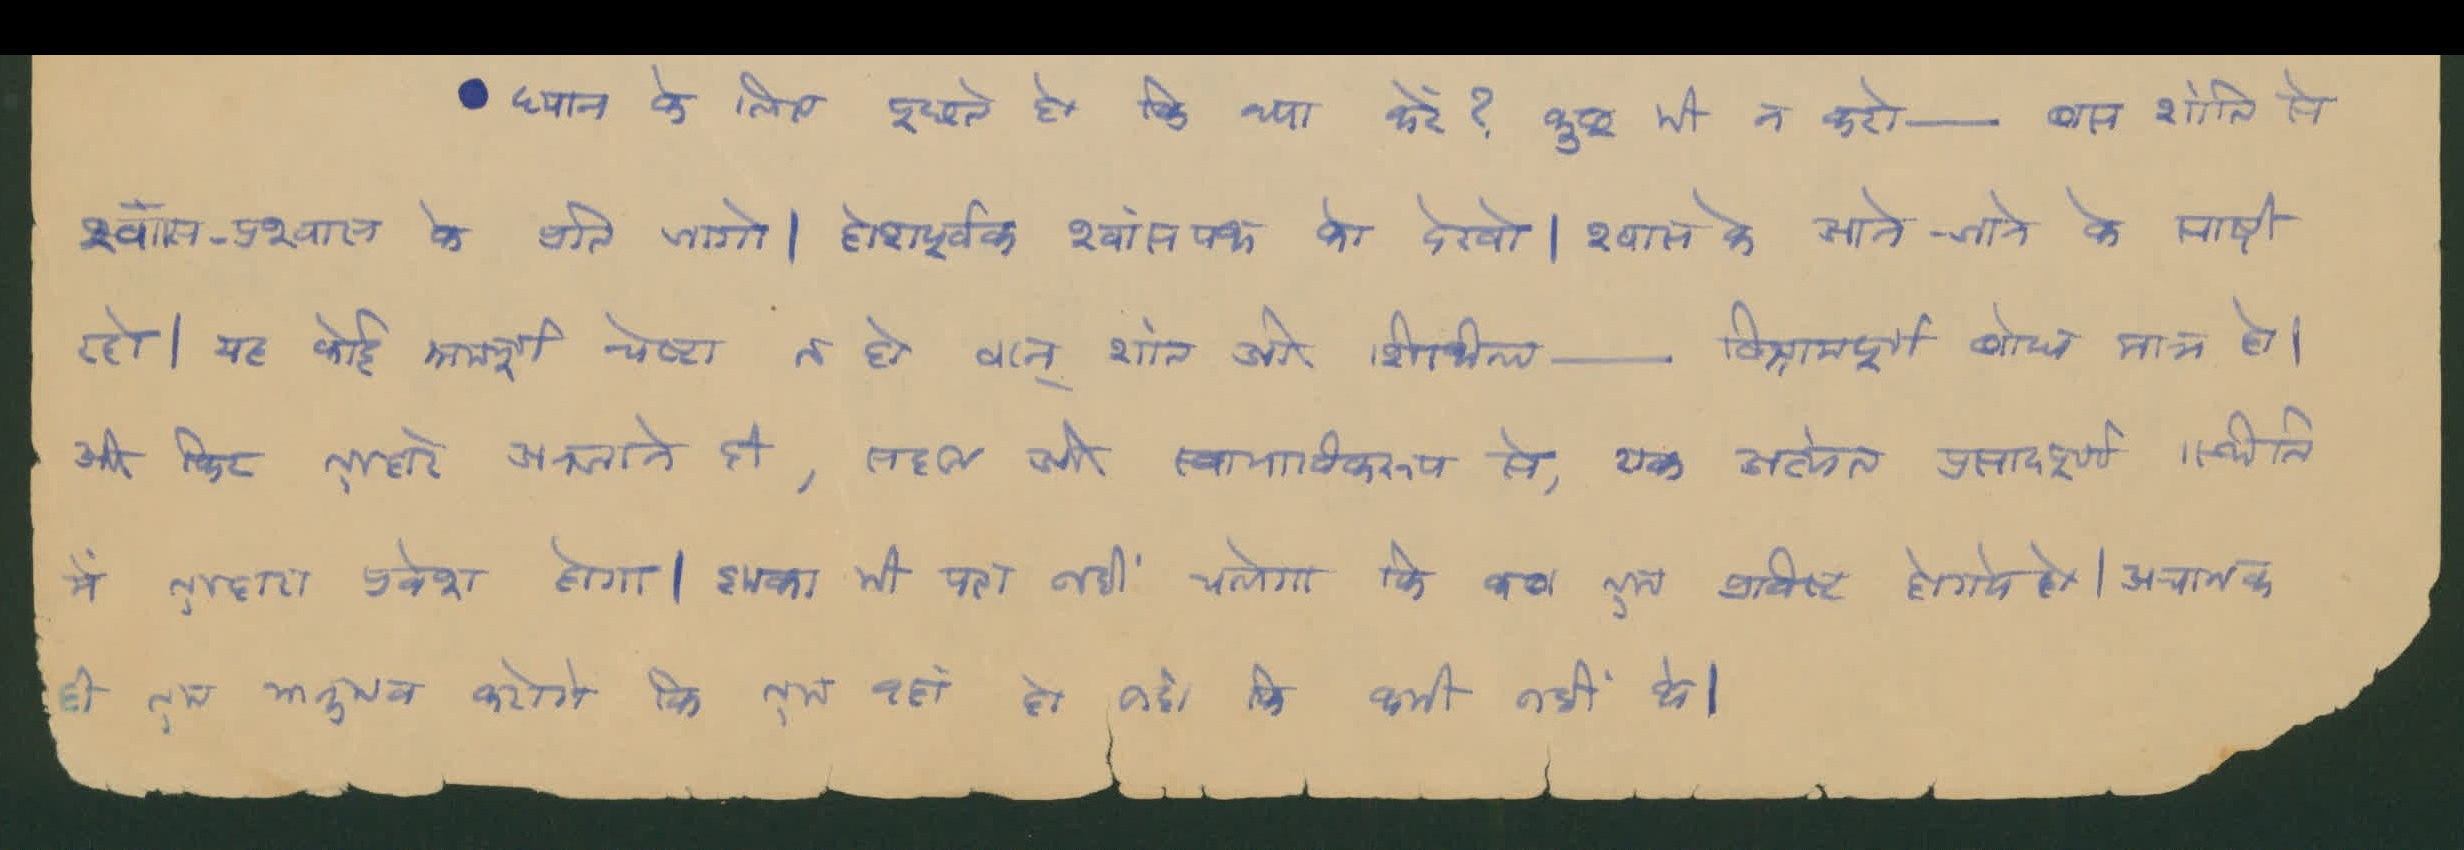 ● ध्यान के लिए पूछते हो कि क्या करें? कुछ भी न करो—— बस शांति से
श्वाँस-प्रश्वास के प्रति जागो। होशपूर्वक श्वांस पथ को देखो। श्वास के आने-जाने के साक्षी
रहो। यह कोई श्रमपूर्ण चेष्टा न हो वरन् शांत और शिथिल—— विश्रामपूर्ण बोध मात्र हो।
और फिर तुम्हारे अनजाने ही, सहज और स्वाभाविकरूप से, एक अत्यंत प्रसादपूर्ण स्थिति
में तुम्हारा प्रवेश होगा। इसका भी पता नहीं चलेगा कि कब तुम प्रविष्ट होगये हो। अचानक
ही तुम अनुभव करोगे कि तुम वहां हो जहां कि कभी नहीं थे।